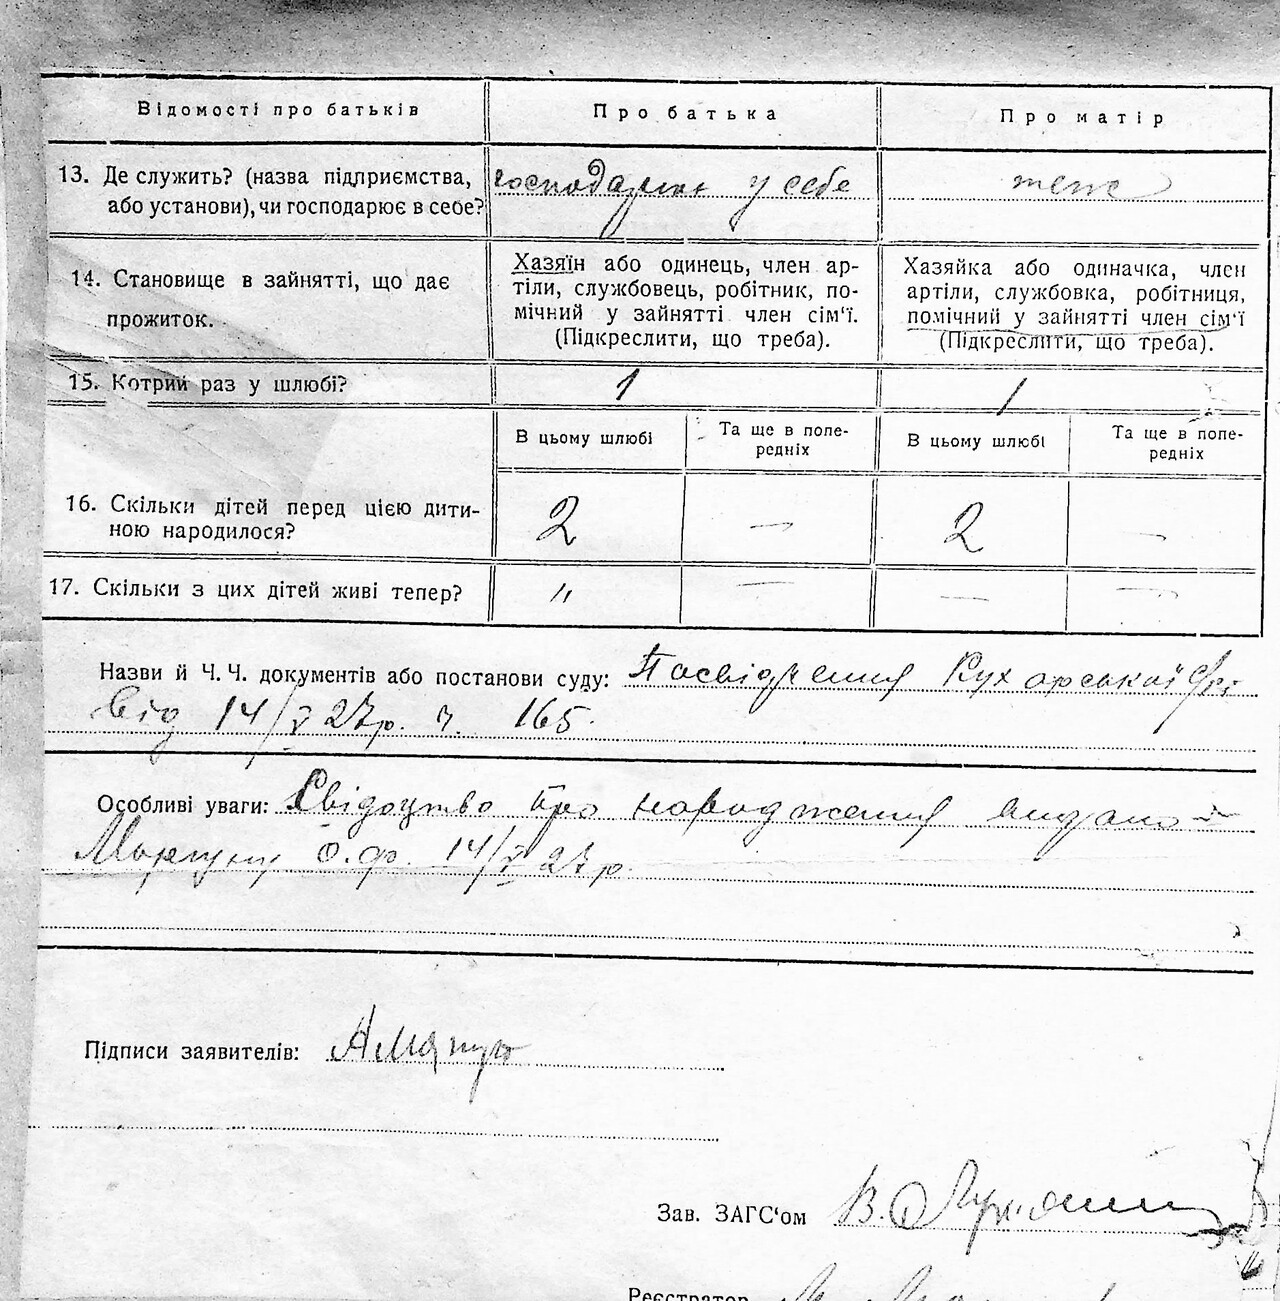 Відомості про батьків
Про батька
Про матір
13. Де служить? (назва підприємства,
або установи), чи господарює в себе?
господарює у себе
теж
14. Становище в зайнятті, що дає
прожиток.
Хазяїн або одинець, член ар-
тіли, службовець, робітник, по-
мічний у зайнятті член сім'ї.
(Підкреслити, що треба).
Хазяйка або одиначка, член
артіли, службовка, робітниця,
помічний у зайнятті член сім'ї
(Підкреслити, що треба).
15. Котрий раз у шлюбі?
1
1
В цьому шлюбі
Та ще в попе-
редніх
В цьому шлюбі
Та ще в попе-
редніх
16. Скільки дітей перед цією дити-
ною народилося?
2
—
2
—
17. Скільки з цих дітей живі тепер?
"
—
—
—
Назви й Ч. Ч. документів або постанови суду: Посвідчення Кухарської
від 14/V 27р. ч. 165.
Особливі уваги: Свідоцтво про народження видано
14/V 27р.
Підписи заявителів:
Зав. ЗАГС'ом В.
Реєстратор